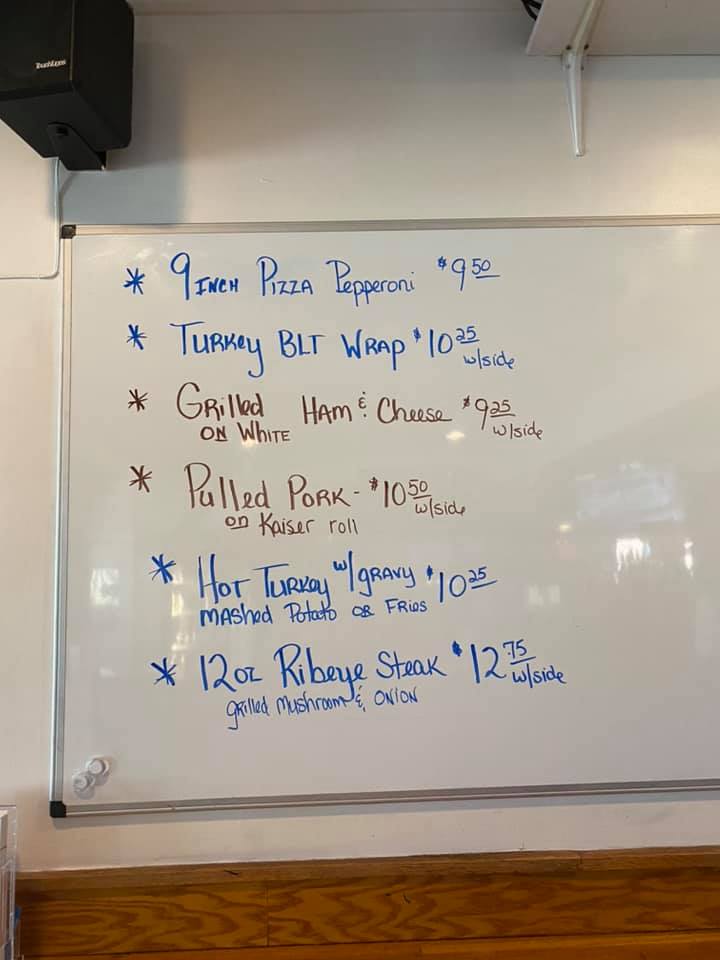 TouchTunes
* 9 INCH PIZZA Pepperoni $9.50
* TURKEY BLT WRAP $10.25
w/side
* GRilled HAM & Cheese $9.25
ON WHITE w/side
* Pulled PORK - $10.50
w/side
on Kaiser roll
* HOT TURKEY w/gravy $10.25
MASHed Potato OR FRIES
* 12oz Ribeye Steak $12.75
w/side
grilled mushroom & ONION